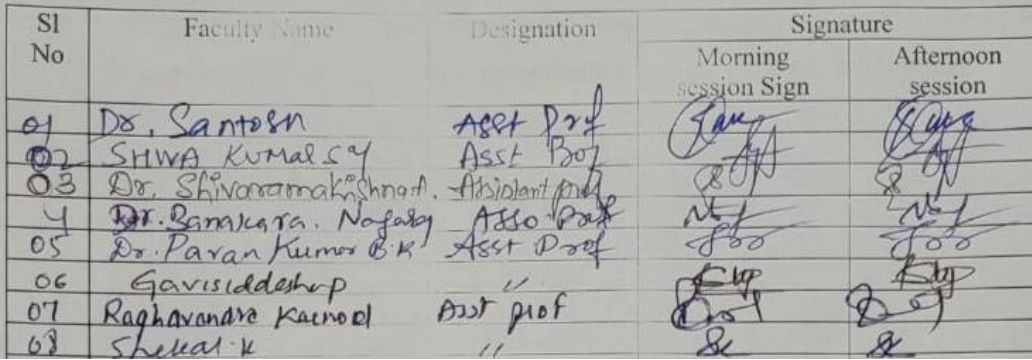 Sl No Faculty Name Designation Signature
Morning session Sign Afternoon session
01 Dr. Santosh Asst Prof
02 SHWA KUMAR S Y Asst Prof
03 Dr. Shivaramakrishna A. Assistant prof
4 Dr. Banakara. Nagaraj Asso Prof
05 Dr. Pavan Kumar B.K Asst Prof
06 Gavisiddeshap "
07 Raghavandra Asst prof
08 Shekar K "